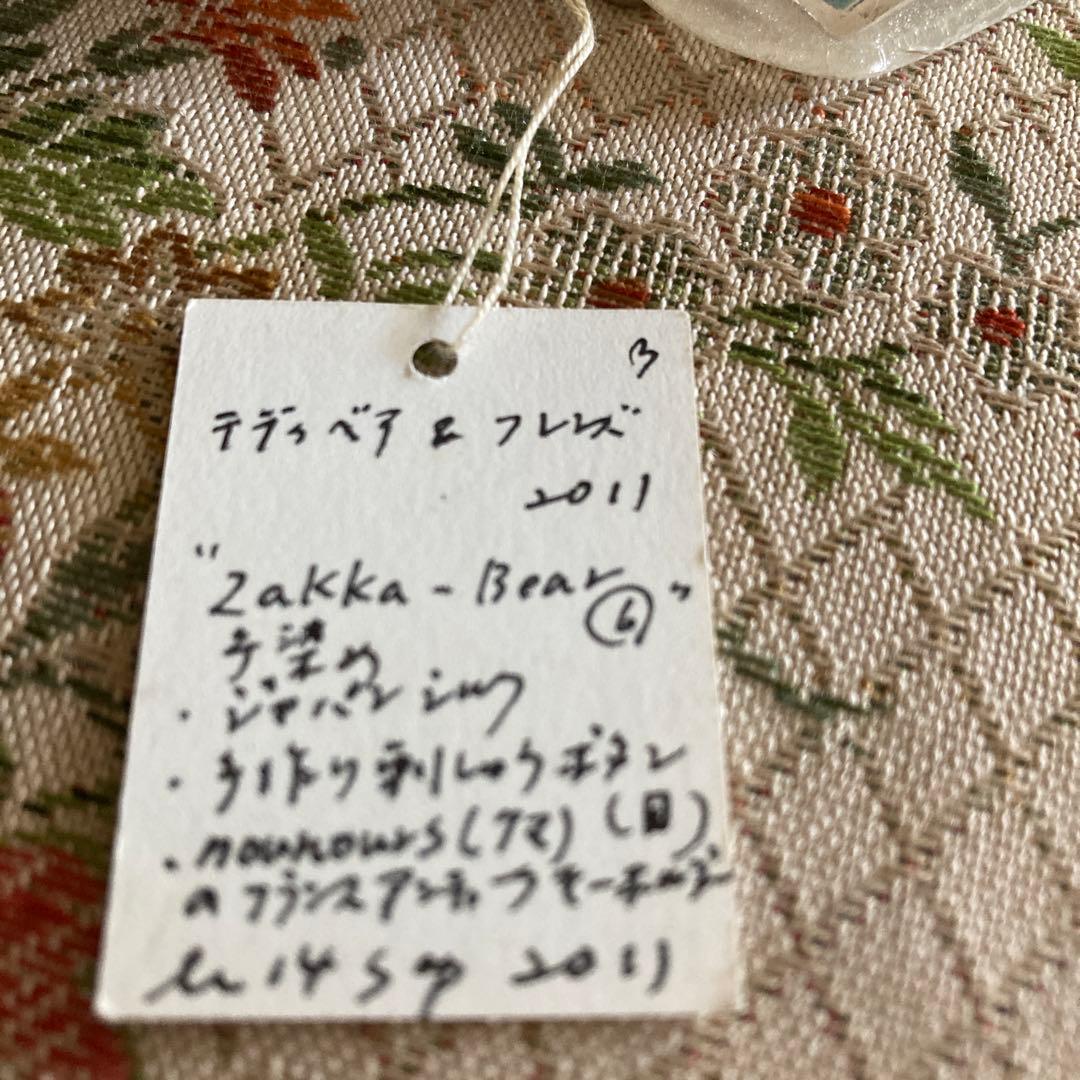 テディベア & フレンズ
2011
"Zakka-Bear ⑥"
手染め
・ジャパンシルク
・手作り刺しゅうボタン
・nounours(クマ) (目)
のフランスアンティークキーホルダー
2011